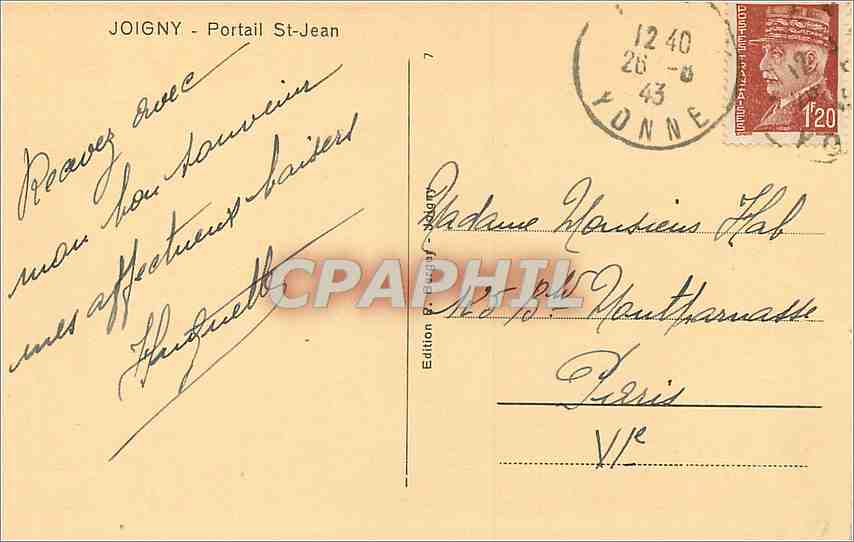 JOIGNY - Portail St-Jean
7
12 40
26 -8
43
YONNE
POSTES FRANÇAISES
1F20
12
Recevez avec
mon bon souvenir
mes affectueux baisers
Huguette
CPAPHIL
Edition R. - Joigny
Madame Monsieur Hab
125 Bld Montparnasse
Paris
VIe